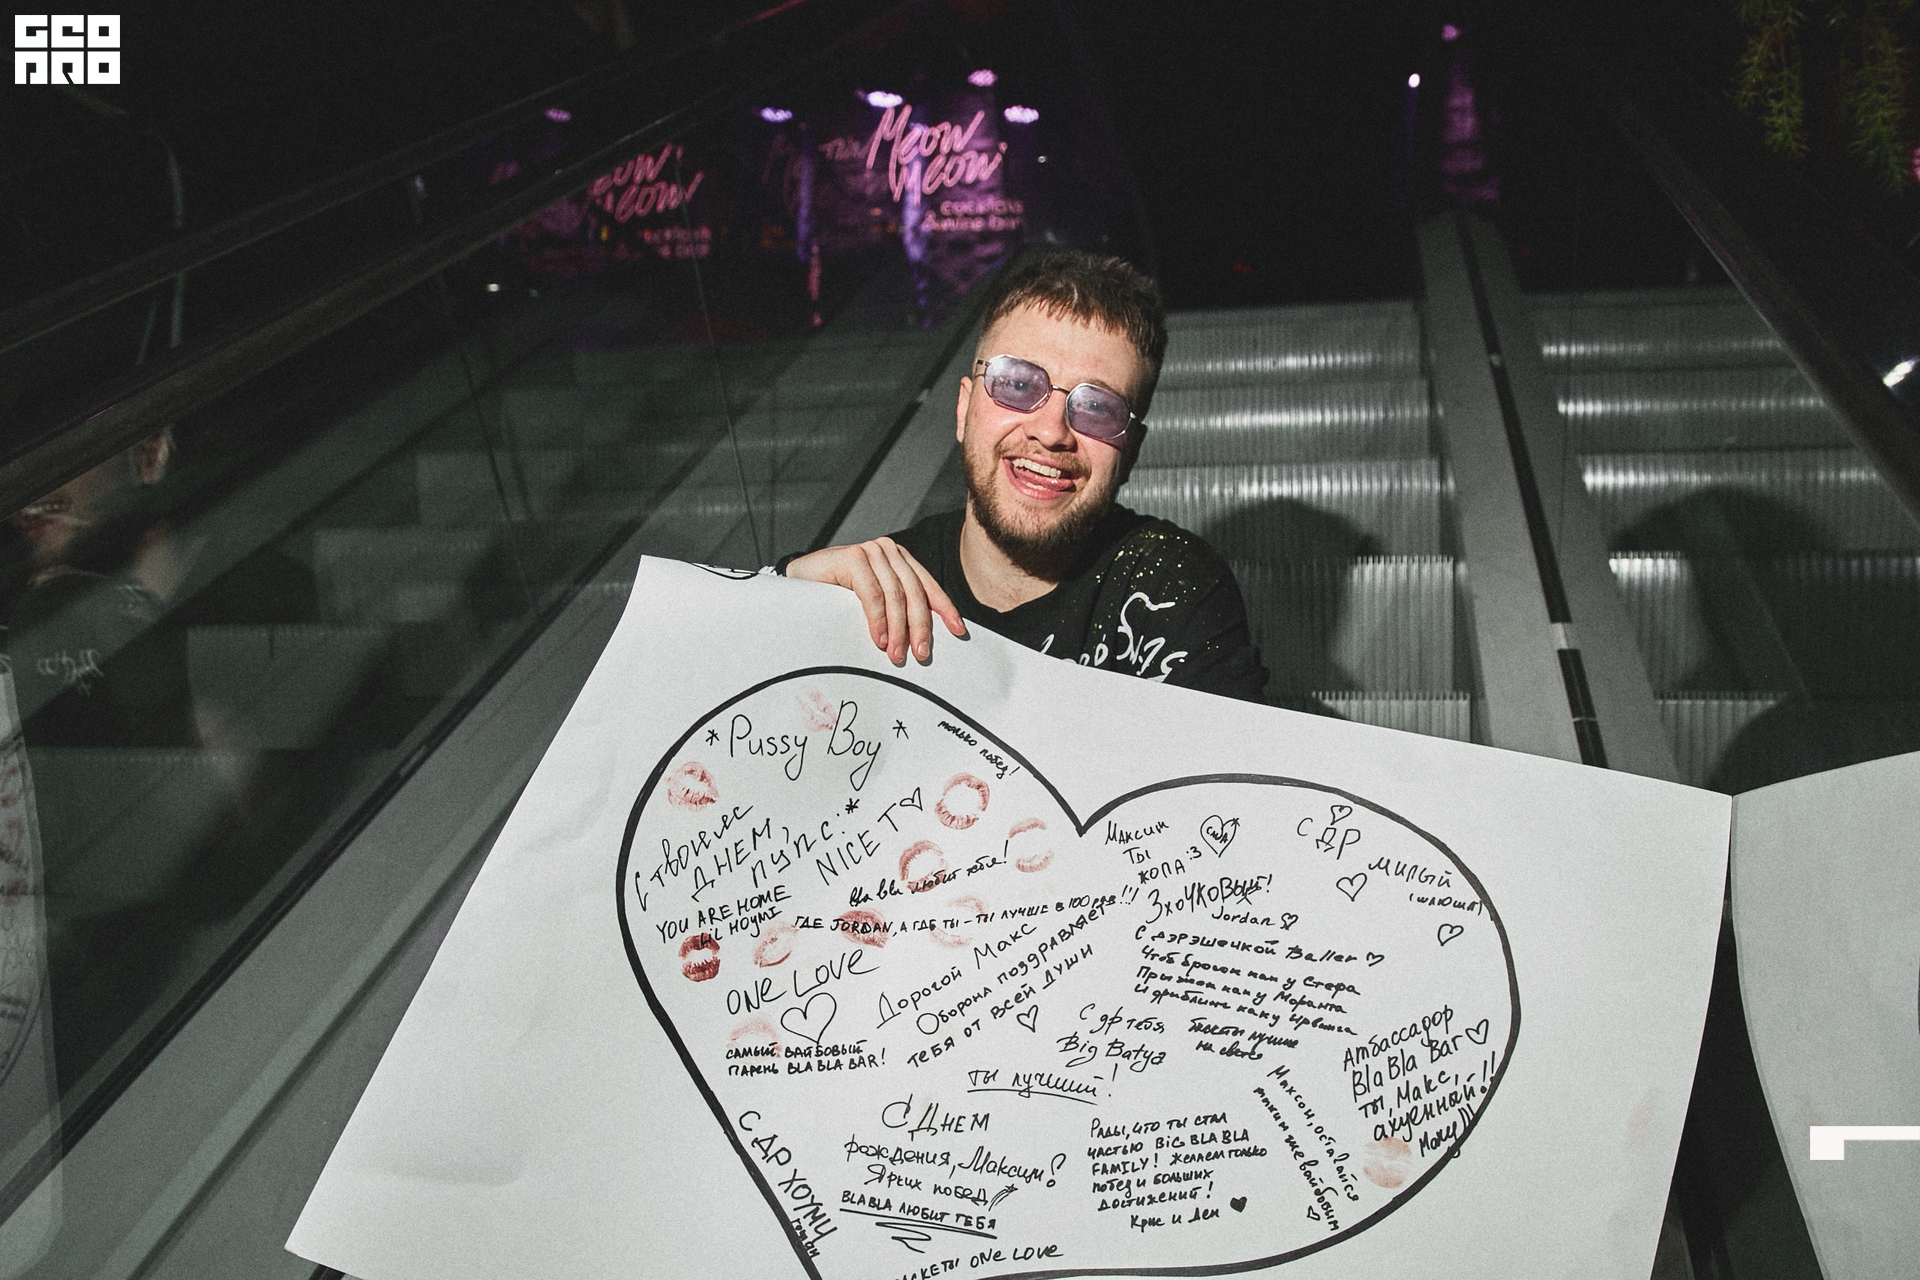 GEO
PRO
MEOW
MEOW
MEOW
MEOW
* Pussy Boy *
только побед!
С твоим
ДНЕМ,
пупс :*
NICE T
YOU ARE HOME
LIL HOYMI
Bla bla любит тебя!
ГДЕ JORDAN, А ГДЕ ТЫ - ТЫ ЛУЧШЕ В 100 РАЗ!!!
ONE LOVE
Дорогой Макс
Оборона поздравляет
тебя от всей души
САМЫЙ ВАЙБОВЫЙ
ПАРЕНЬ BLA BLA BAR!
Максим
Ты
ЖОПА :3
С ДР
милый
Jordan
С дэрэшечкой Baller
Чтоб бросок как у Стефа
Прыжок как у Моранта
И дриблинг как у Ирвинга
С др тебя
Big Batya
баскеты лучшие
на свете
ты лучший!
Амбассадор
Bla Bla Bar
ты, Макс,
ахуенный!!
С Днем
рождения, Максим!
Ярких побед
BLABLA ЛЮБИТ ТЕБЯ
Рады, что ты стал
частью BIG BLA BLA
FAMILY! Желаем только
побед и больших
достижений!
Крис и Ден
Максон, оставайся
таким же вайбовым
С ДР ХОУМИ
ONE LOVE